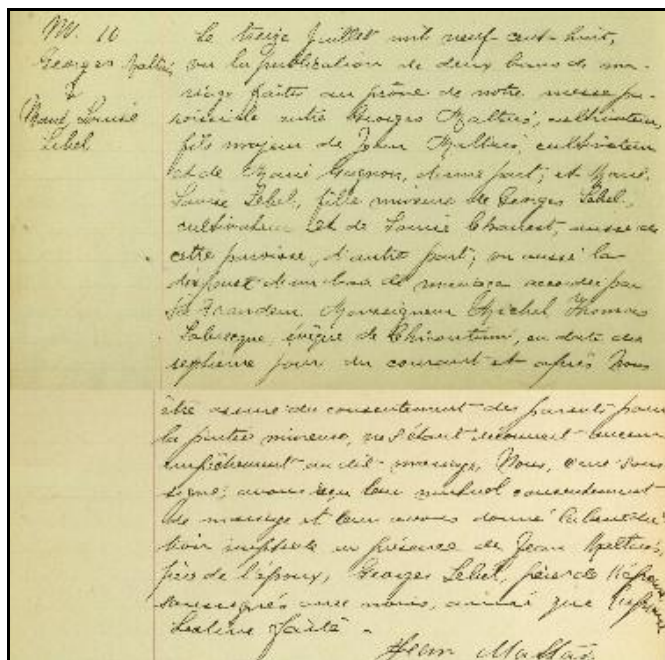 M. 10
Georges Maltais
&
Marie Louise
Lebel
Le treize Juillet mil neuf-cent-huit,
vu la publication de deux bans de ma-
riage faites au prône de notre messe pa-
roissiale entre Georges Maltais, cultivateur,
fils majeur de Jean Maltais, cultivateur
et de Marie Gagnon, d'une part; et Marie
Louise Lebel, fille mineure de Georges Lebel,
cultivateur et de Louise Chouest, aussi de
cette paroisse, d'autre part; vu aussi la
dispense d'un ban de mariage accordée par
Sa Grandeur Monseigneur Michel Thomas
Labrecque, évêque de Chicoutimi, en date du
septième jour du courant et après nous
être assuré du consentement des parents pour
la partie mineure, ne s'étant découvert aucun
empêchement au dit mariage, Nous, curé sous-
signé, avons reçu leur mutuel consentement
de mariage et leur avons donné la bénédic
tion nuptiale en présence de Jean Maltais,
père de l'époux, Georges Lebel, père de l'épouse,
soussignés avec nous, ainsi que l'épouse
Lecture faite.
Jean Maltais